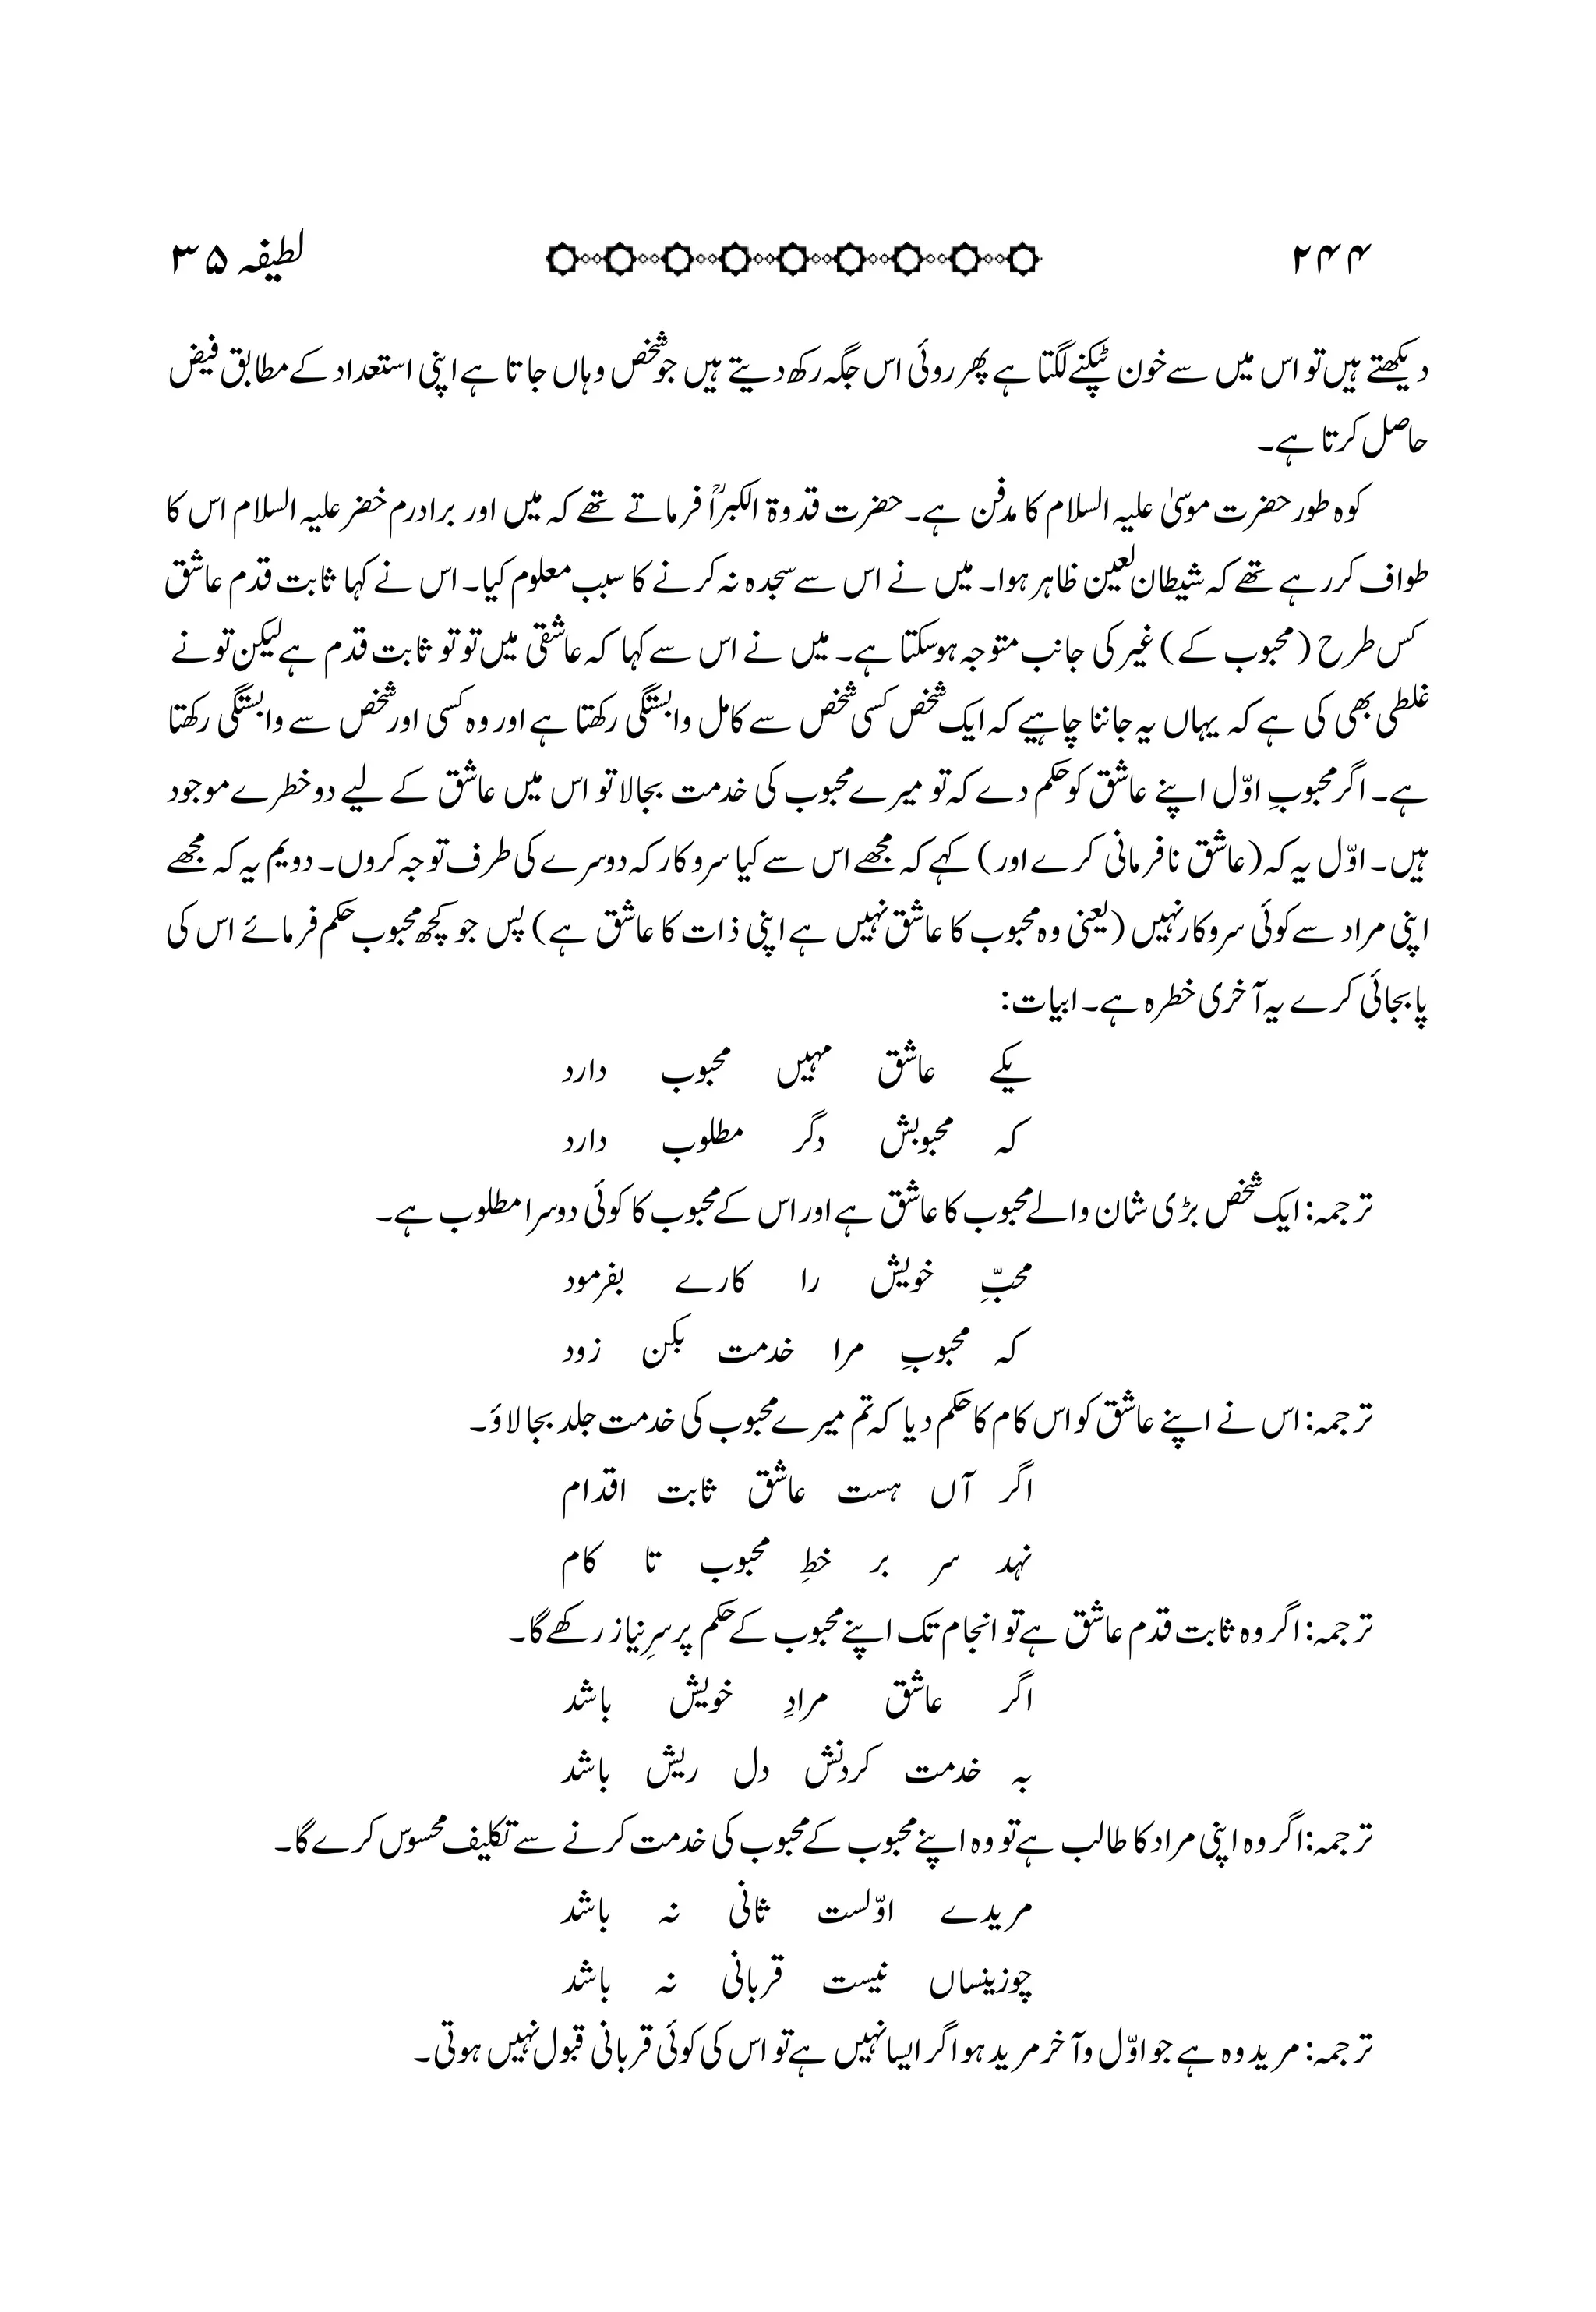 ۲۴۴ لطیفہ ۳۵
دیکھتے ہیں تو اس میں سے خون ٹپکنے لگتا ہے پھر روئی اس جگہ رکھ دیتے ہیں جو شخص وہاں جاتا ہے اپنی استعداد کے مطابق فیض
حاصل کرتا ہے۔
کوہ طور حضرت موسیٰ علیہ السلام کا مدفن ہے۔ حضرت قدوۃ الکبراؒ فرماتے تھے کہ میں اور برادرم خضر علیہ السلام اس کا
طواف کر رہے تھے کہ شیطان لعین ظاہر ہوا۔ میں نے اس سے سجدہ نہ کرنے کا سبب معلوم کیا۔ اس نے کہا ثابت قدم عاشق
کس طرح (محبوب کے) غیر کی جانب متوجہ ہوسکتا ہے۔ میں نے اس سے کہا کہ عاشقی میں تو تو ثابت قدم ہے لیکن تو نے
غلطی بھی کی ہے کہ یہاں یہ جاننا چاہیے کہ ایک شخص کسی شخص سے کامل وابستگی رکھتا ہے اور وہ کسی اور شخص سے وابستگی رکھتا
ہے۔ اگر محبوبِ اوّل اپنے عاشق کو حکم دے کہ تو میرے محبوب کی خدمت بجالا تو اس میں عاشق کے لیے دو خطرے موجود
ہیں۔ اوّل یہ کہ (عاشق نافرمانی کرے اور) کہے کہ مجھے اس سے کیا سروکار کہ دوسرے کی طرف توجہ کروں۔ دویم یہ کہ مجھے
اپنی مراد سے کوئی سروکار نہیں (یعنی وہ محبوب کا عاشق نہیں ہے اپنی ذات کا عاشق ہے) پس جو کچھ محبوب حکم فرمائے اس کی
پابجائی کرے یہ آخری خطرہ ہے۔ ابیات:
یکے عاشق مہیں محبوب دارد
کہ محبوبش دگر مطلوب دارد
ترجمہ: ایک شخص بڑی شان والے محبوب کا عاشق ہے اور اس کے محبوب کا کوئی دوسرا مطلوب ہے۔
محبِّ خویش را کارے بفرمود
کہ محبوبِ مرا خدمت بکن زود
ترجمہ: اس نے اپنے عاشق کو اس کام کا حکم دیا کہ تم میرے محبوب کی خدمت جلد بجا لاؤ۔
اگر آں ہست عاشق ثابت اقدام
نہد سر بر خطِ محبوب تا کام
ترجمہ: اگر وہ ثابت قدم عاشق ہے تو انجام تک اپنے محبوب کے حکم پر سرِ نیاز رکھے گا۔
اگر عاشق مرادِ خویش باشد
بہ خدمت کردنش دل ریش باشد
ترجمہ: اگر وہ اپنی مراد کا طالب ہے تو وہ اپنے محبوب کے محبوب کی خدمت کرنے سے تکلیف محسوس کرے گا۔
مریدے اوّلست ثانی نہ باشد
چوزینساں نیست قربانی نہ باشد
ترجمہ: مرید وہ ہے جو اوّل و آخر مرید ہو اگر ایسا نہیں ہے تو اس کی کوئی قربانی قبول نہیں ہوتی۔